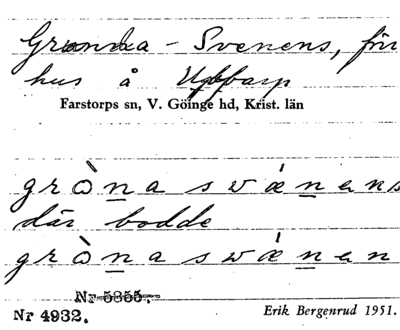 Granna-Svenens, förr
hus å Ugbarp
Farstorps sn, V. Göinge hd, Krist. län
gròna swǽnens
där bodde
gròna swǽnen
Nr 5355.
Nr 4932. Erik Bergenrud 1951.